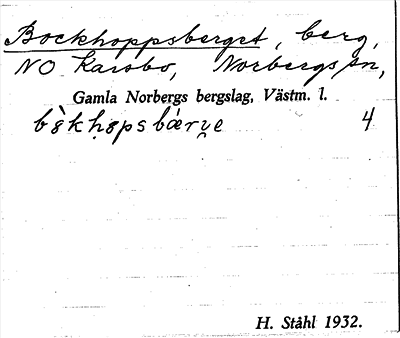 Bockhoppsberget, berg,
NO Karsbo, Norbergs sn,
Gamla Norbergs bergslag, Västm. l.
4
H. Ståhl 1932.